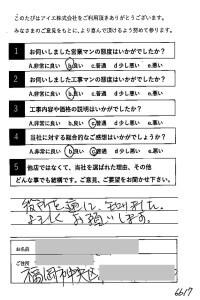 このたびはアイエ株式会社をご利用頂きありがとうございます。
みなさまのご意見をもとに、より喜んで頂けるよう努めて参ります。
1 お伺いしました営業マンの態度はいかがでしたか?
A.非常に良い b.良い c.普通 d.少し悪い e.悪い
2 お伺いしました工事マンの態度はいかがでしたか?
A.非常に良い b.良い c.普通 d.少し悪い e.悪い
3 工事内容や価格の説明はいかがでしたか?
A.非常に良い b.良い c.普通 d.少し悪い e.悪い
4 当社に対する総合的なご感想はいかがでしょうか?
A.非常に良い b.良い c.普通 d.少し悪い e.悪い
5 他店ではなくて、当社を選ばれた理由、その他
どんな事でも結構です。ご意見、ご要望をお聞かせ下さい。
を通じて、知りました。
よろしくお願いします。
お名前
ご住所
福岡市中央区
6617